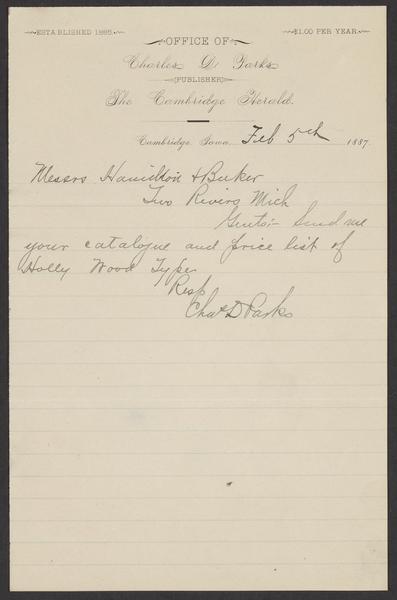 ESTABLISHED 1885.
$1.00 PER YEAR.
OFFICE OF
Charles D. Parks
PUBLISHER
The Cambridge Herald.
Cambridge, Iowa, Feb 5th 1887.
Messrs Hamilton & Baker
Two Rivers Mich
Gents:- Send me
your catalogue and price list of
Holly Wood Type
Resp
Chas D Parks